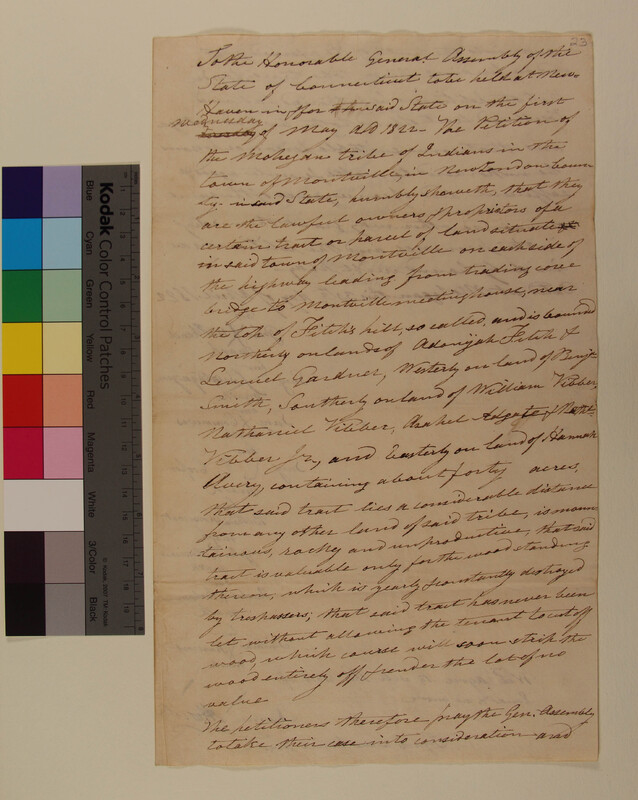 23
To the Honorable General Assembly of the
State of Connecticut to be held at New-
Haven in & for the said State on the first
Wednesday
Tuesday of May AD 1822. The Petition of
the Mohegan tribe of Indians in the
town of Montville, in New London Coun
ty in said State, humbly sheweth, that they
are the lawful owners & propristors of a
certain tract or parcel of land situate
in said town of Montville on each side of
the highway leading from trading cove
bridge to Montville meetinghouse, near
the top of Fitch's hill, so called, and is bound
Northerly on lands of Adonijah Fitch &
Lemuel Gardner, Westerly on land of Benjn
Smith, Southerly on land of William Vibber,
Nathaniel Vibber, Asahel Adgate & Nathl
Vibber Jr, and Easterly on land of Hannah
Avery, containing about forty acres,
that said tract lies a considerable distance
from any other land of said tribe, is moun
tainous, rocky and unproductive, that said
tract is valuable only for the wood standing
thereon, which is yearly & constantly destroyed
by trespassers; that said tract has never been
let without allowing the tenant to cut off
wood, which course will soon strip the
wood entirely off & render the lot of no
value
The petitioners therefore pray the Gen. Assembly
to take their case into consideration and
Kodak Color Control Patches
Blue
Cyan
Green
Yellow
Red
Magenta
White
3/Color
Black
© Kodak, 2007 TM: Kodak